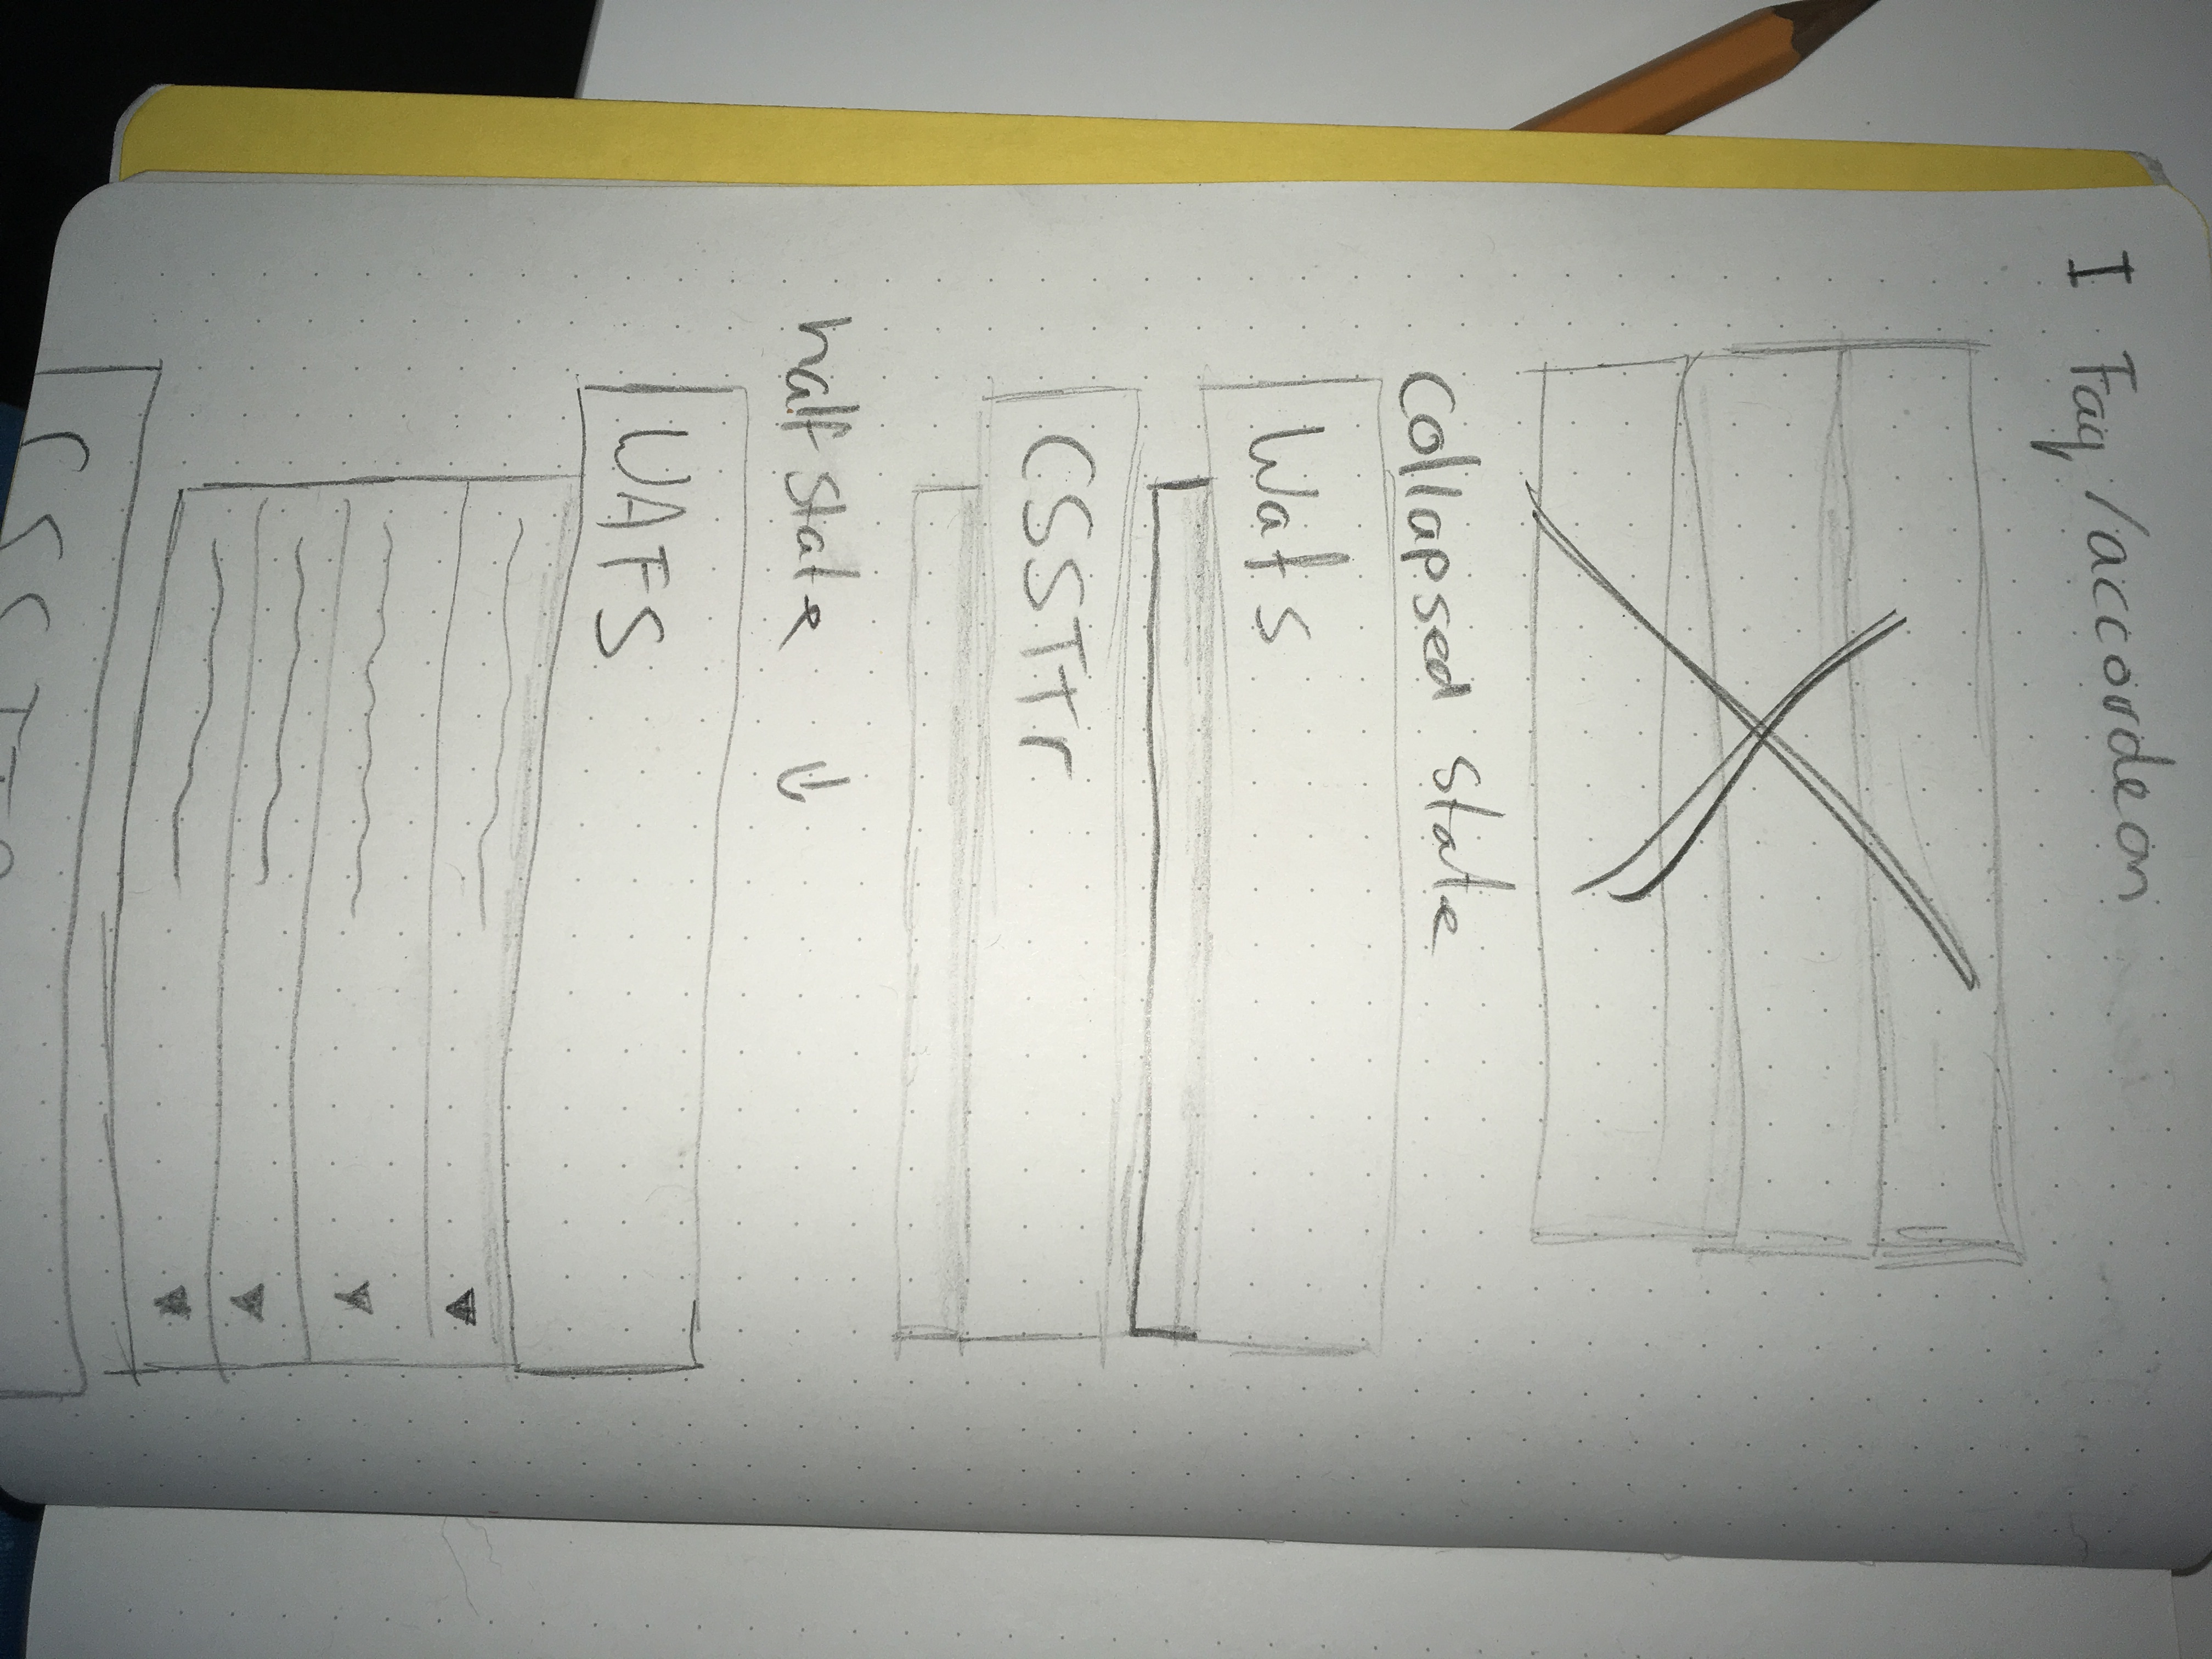 I Faq /accordeon
Collapsed state
Wafs
CSSTTr
half state ↓
WAFS